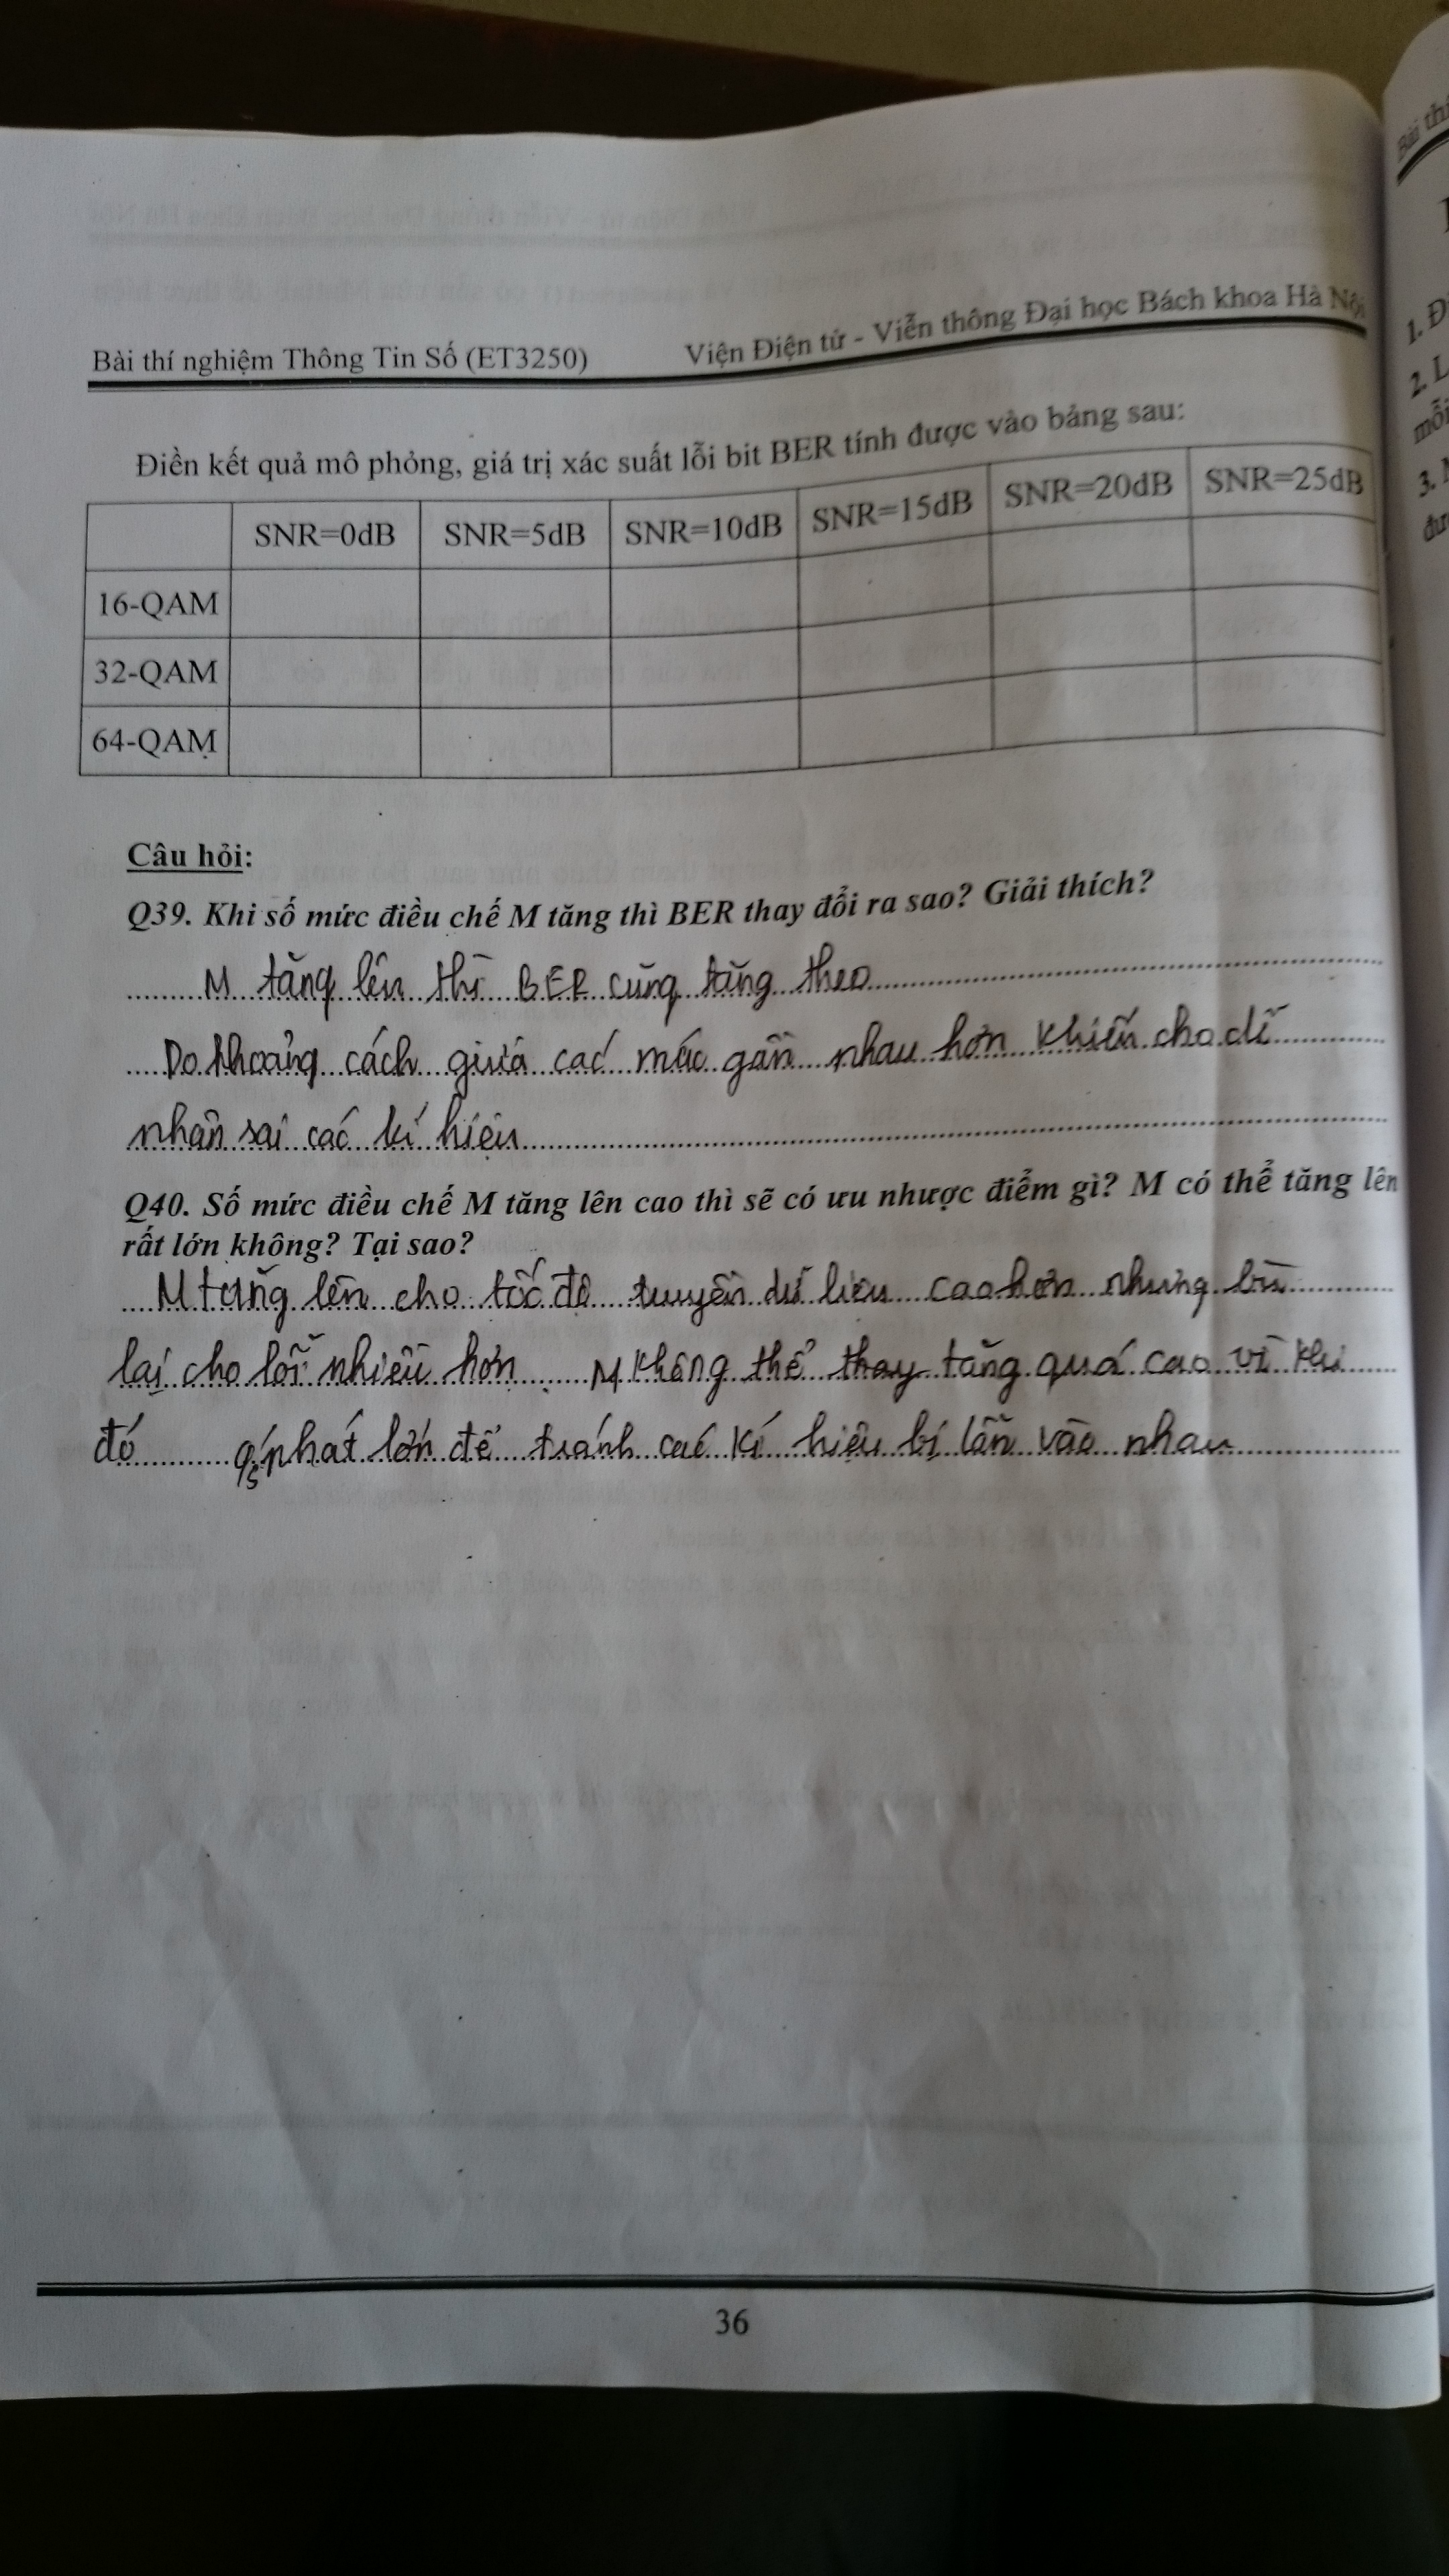 Bài thí nghiệm Thông Tin Số (ET3250) Viện Điện tử - Viễn thông Đại học Bách khoa Hà Nội
Điền kết quả mô phỏng, giá trị xác suất lỗi bit BER tính được vào bảng sau:
SNR=0dB SNR=5dB SNR=10dB SNR=15dB SNR=20dB SNR=25dB
16-QAM
32-QAM
64-QAM
Câu hỏi:
Q39. Khi số mức điều chế M tăng thì BER thay đổi ra sao? Giải thích?
M tăng lên thì BER cũng tăng theo
Do khoảng cách giữa các mức gần nhau hơn khiến cho dễ
nhận sai các kí hiệu
Q40. Số mức điều chế M tăng lên cao thì sẽ có ưu nhược điểm gì? M có thể tăng lên
rất lớn không? Tại sao?
M tăng lên cho tốc độ truyền dữ liệu cao hơn nhưng bù
lại cho lỗi nhiều hơn M không thể thay tăng quá cao vì khi
đó phát lớn để tránh các kí hiệu bị lẫn vào nhau
36
Bài th
1. Đ
2. L
mỗi
3.
đư